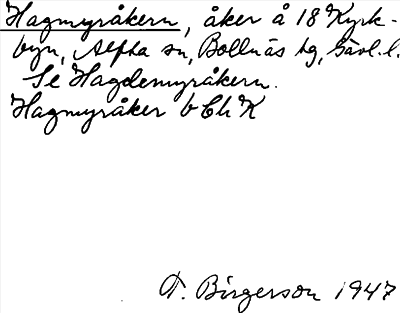 Hagmyråkern, åker å 18 Kyrk-
byn, Alfta sn, Bollnäs tg, Gävl. l.
Se Hagdemyråkern.
Hagmyråker b Ch K
T. Birgerson 1947